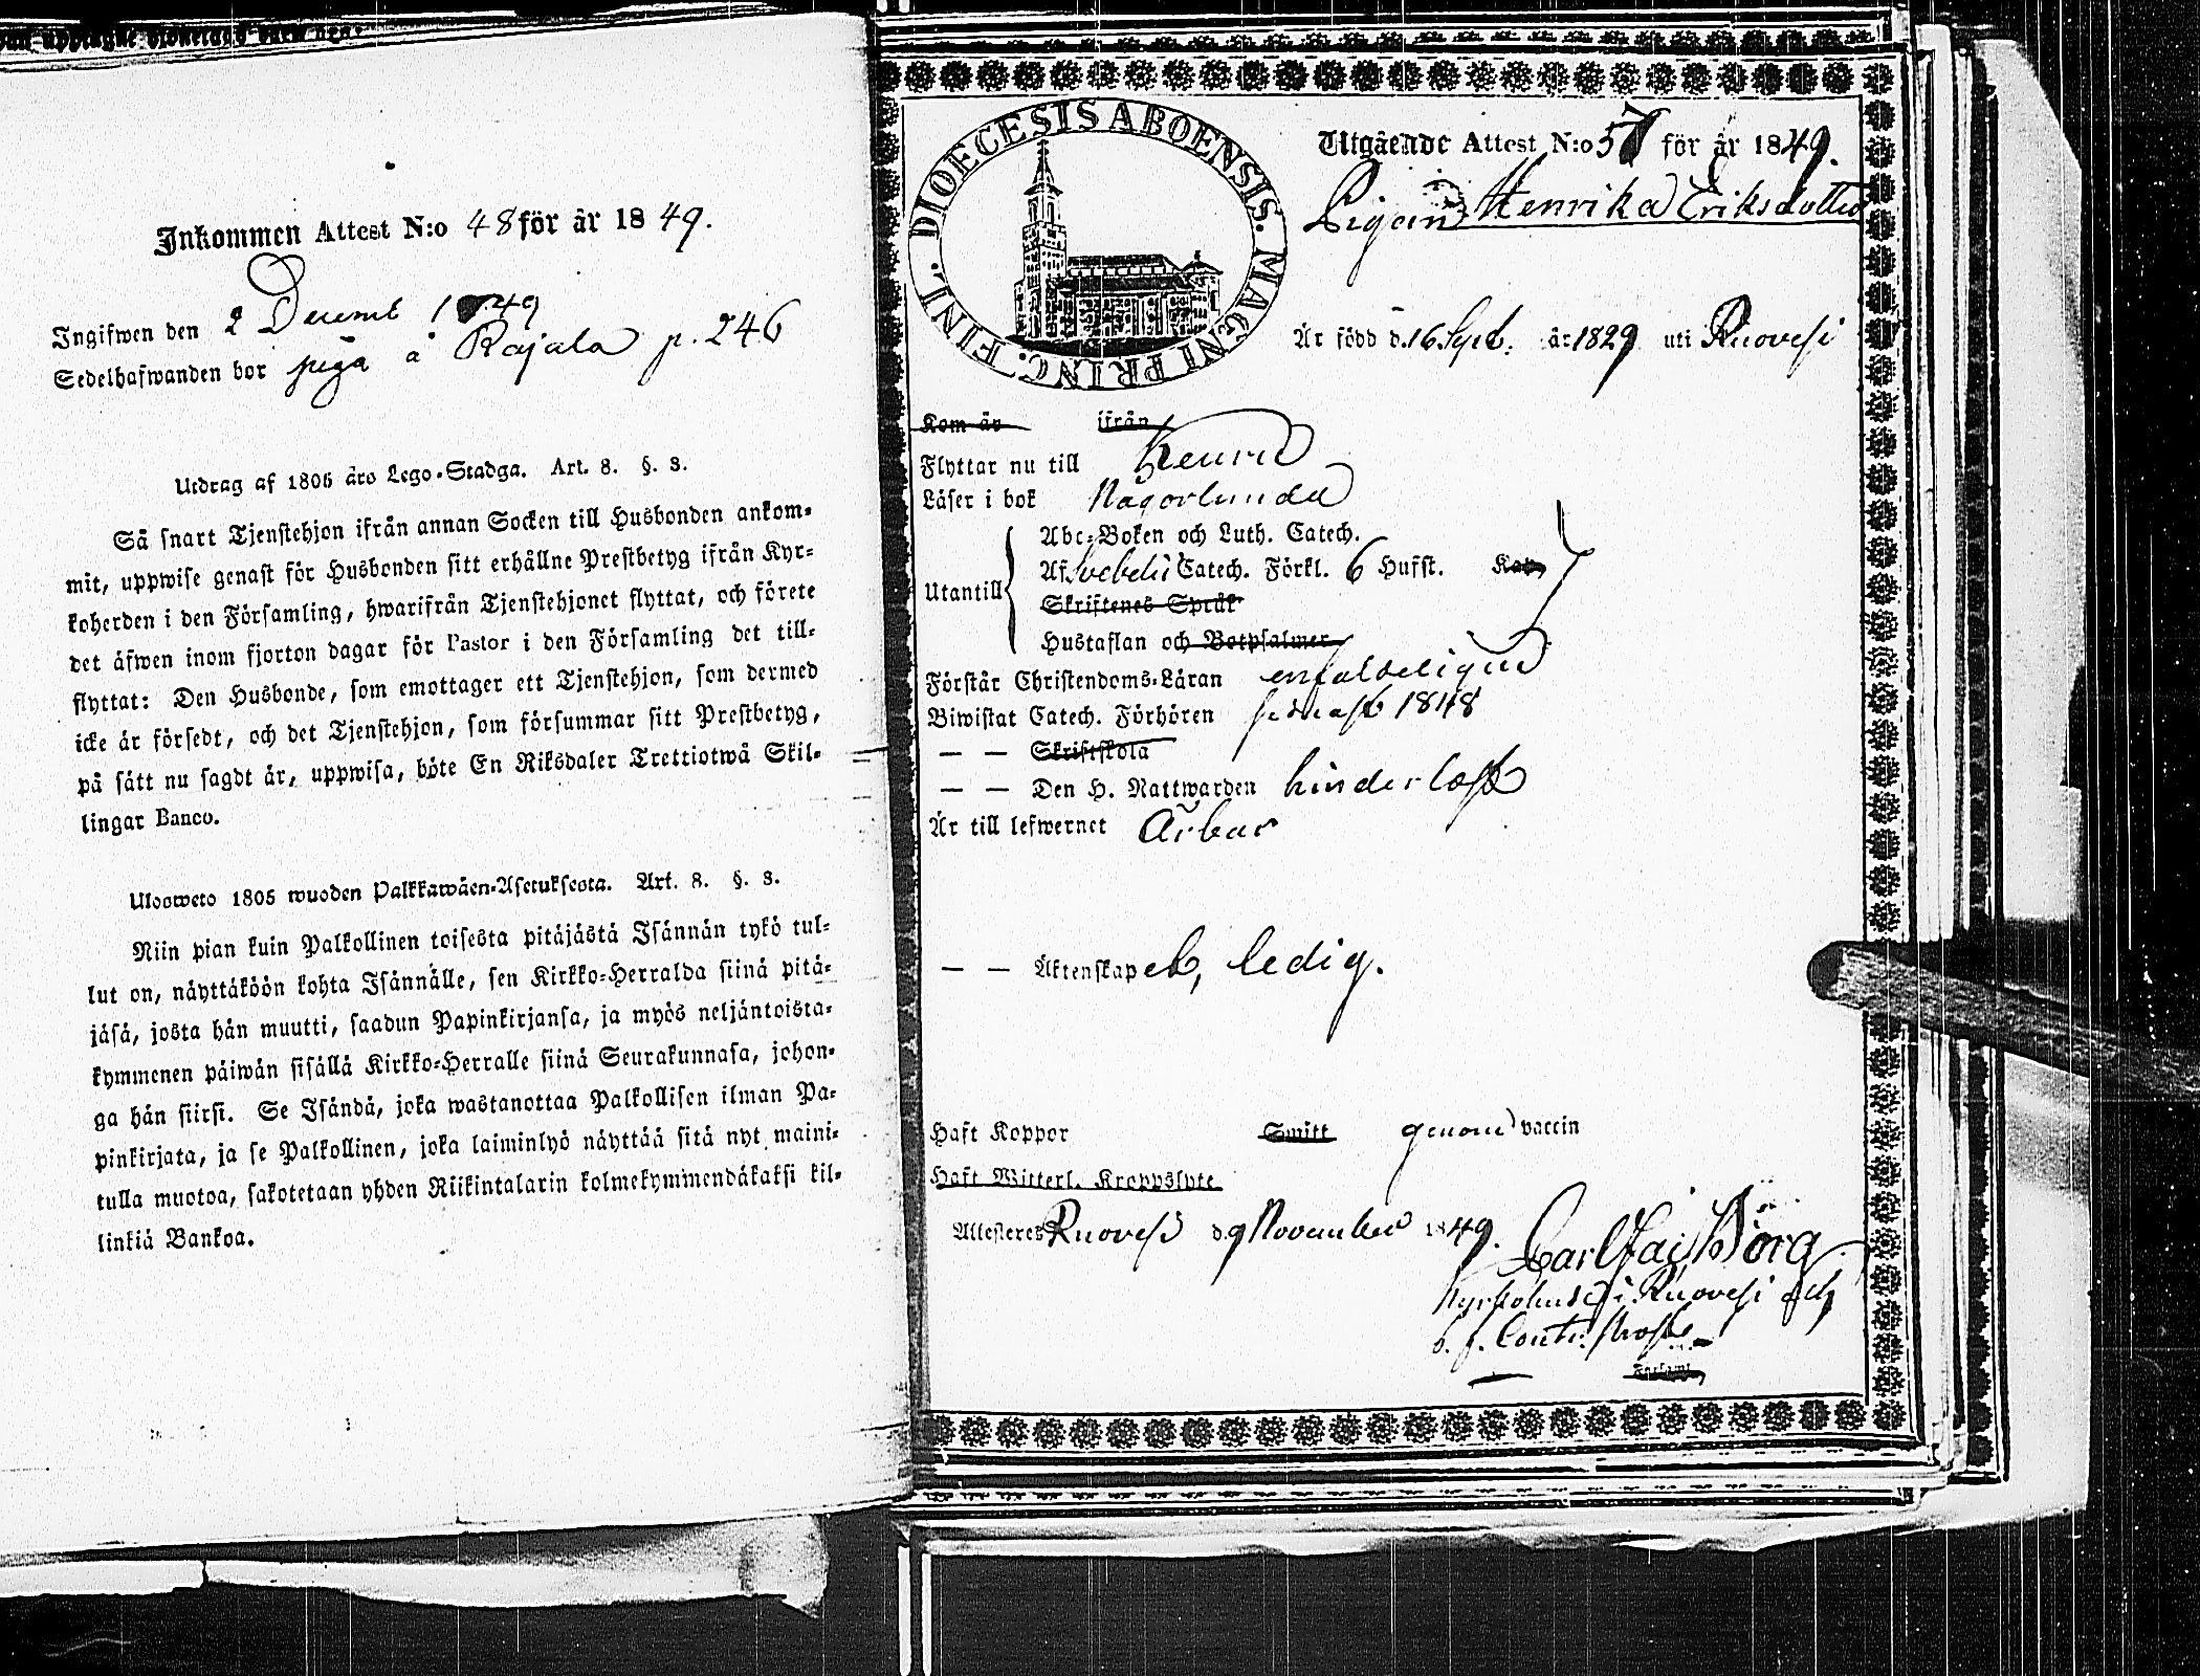 Inkommen Attest N:o 48 för år 1849.
Ingifwen den 2 Decemb 1849
Sedelhafwanden bor piga å Rajala p. 246
Utdrag af 1805 års Lego-Stadga. Art. 8. §. 3.
Så snart Tjenstehjon ifrån annan Socken till Husbonden ankom-
mit, uppwise genast för Husbonden sitt erhållne Prestbetyg ifrån Kyr-
koherden i den Församling, hwarifrån Tjenstehjonet flyttat, och förete
det äfwen inom fjorton dagar för Pastor i den Församling det till-
flyttat: Den Husbonde, som emottager ett Tjenstehjon, som dermed
icke är försedt, och det Tjenstehjon, som försummar sitt Prestbetyg,
på sätt nu sagdt är, uppwisa, böte En Riksdaler Trettiotwå Skil-
lingar Banco.
Ulosweto 1805 wuoden Palkkawäen-Asetuksesta. Art. 8. §. 3.
Niin pian kuin Palkollinen toisesta pitäjästä Isännän tykö tul-
lut on, näyttäköön kohta Isännälle, sen Kirkko-Herralda siinä pitä-
jäsä, josta hän muutti, saadun Papinkirjansa, ja myös neljäntoista-
kymmenen päiwän sisällä Kirkko-Herralle siinä Seurakunnasa, johon-
ga hän siirsi. Se Isändä, joka wastanottaa Palkollisen ilman Pa-
pinkirjata, ja se Palkollinen, joka laiminlyö näyttää sitä nyt maini-
tulla muotoa, sakotetaan yhden Riikintalarin kolmekymmendäkaksi kil-
linkiä Bankoa.
DIOECESIS ABOENSIS. MAGNI PRINC. FINL.
Utgående Attest N:o 57 för år 1849.
Pigan Henrika Eriksdotter
Är född d. 16 Sept. år 1829 uti Ruovesi
Kom år ifrån
Flyttar nu till Keuru
Läser i bok Någorlunda
Utantill
Abc-Boken och Luth. Catech.
Af Svebelii Catech. Förkl. 6 Hufst. Kap.
Skriftenes Språk
Hustaflan och Botpsalmer
Förstår Christendoms-Läran enfaldeligen
Biwistat Catech. Förhören sednast 1848
— — Skriftskola
— — Den H. Nattwarden hinderlöst
Är till lefwernet Ärbar
— — Äktenskapet, ledig.
Haft Koppor Smitt genom vaccin
Haft Witterl. Kroppslyte
Attesteres Ruovesi d. 9 November 1849.
Carl Björg
Kyrkoherde i Ruovesi och
b. f. Contr. Prost
Församl.